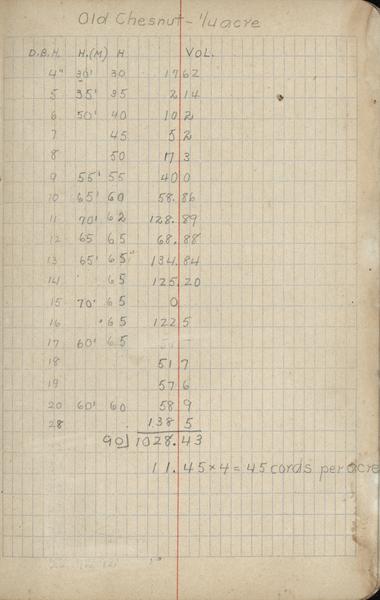 Old Chesnut - 1/4 acre
D.B.H. H.(M) H VOL.
4" 30' 30 17 62
5 35' 35 2 14
6 50' 40 10 2
7 45 5 2
8 50 17 3
9 55' 55 40 0
10 65' 60 58.86
11 70' 62 128.89
12 65 65 68.88
13 65' 65 134.84
14 65 125.20
15 70' 65 0
16 65 122 5
17 60' 65
18 51 7
19 57 6
20 60' 60 58 9
28 138 5
90)1028.43
11.45 x 4 = 45 cords per acre